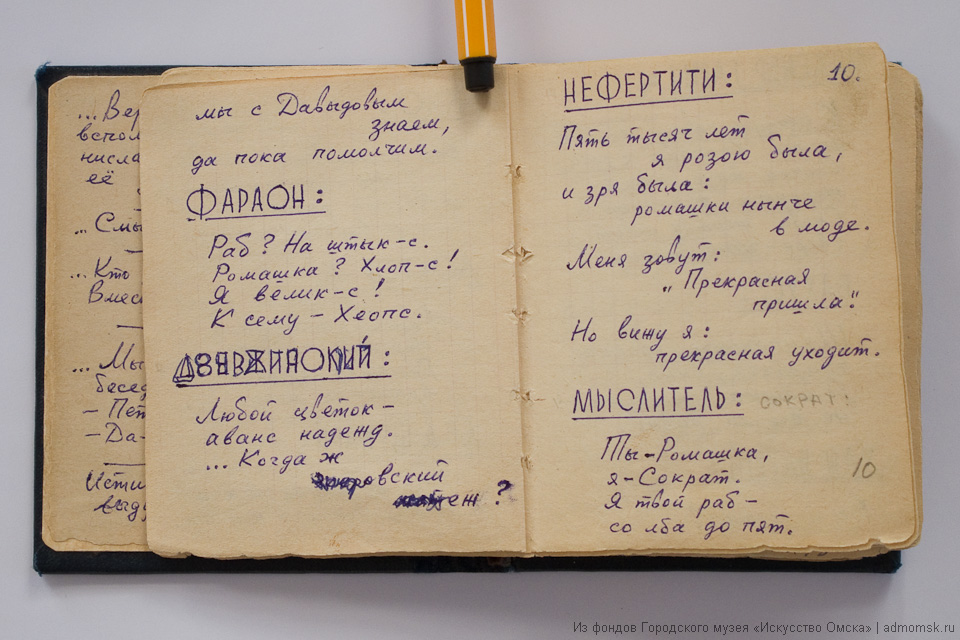 ... Вер
вспом
нисла
её
... Смы
... Кто
Вмес
... Мы
бесед
– Пет
– Да-
Исти
выду
мы с Давыдовым
знаем,
да пока помолчим.
ФАРАОН:
Раб? На штык-с.
Ромашка? Хлоп-с!
Я велик-с!
К сему – Хеопс.
Любой цветок –
аванс надежд.
... Когда ж
овский
еж?
10.
НЕФЕРТИТИ:
Пять тысяч лет
я розою была,
и зря была:
ромашки нынче
в моде.
Меня зовут:
„Прекрасная
пришла".
Но вижу я:
прекрасная уходит.
МЫСЛИТЕЛЬ: СОКРАТ:
Ты-Ромашка,
я-Сократ.
Я твой раб –
со лба до пят.
10
Из фондов Городского музея «Искусство Омска» | admomsk.ru